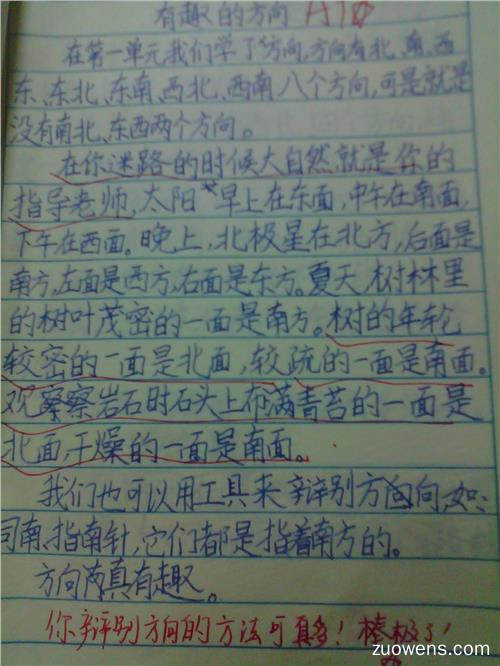 有趣的方向
在第一单元我们学了方向,方向有北、南、西
东、东北、东南、西北、西南八个方向,可是就是
没有南北、东西两个方向。
在你迷路的时候大自然就是你的
指导老师,太阳早上在东面,中午在南面,
下午在西面。晚上,北极星在北方,后面是
南方,左面是西方,右面是东方。夏天,树林里
的树叶茂密的一面是南方。树的年轮
较密的一面是北面,较疏的一面是南面。
观察岩石时石头上布满青苔的一面是
北面,干燥的一面是南面。
我们也可以用工具来辩别方向,如:
司南、指南针,它们都是指着南方的。
方向真有趣。
你辩别方向的方法可真多!棒极了!
zuowens.com